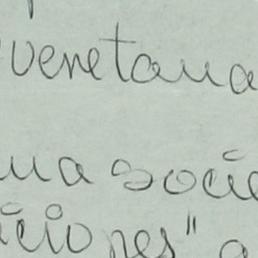 venetana
ua socie
iciones" a